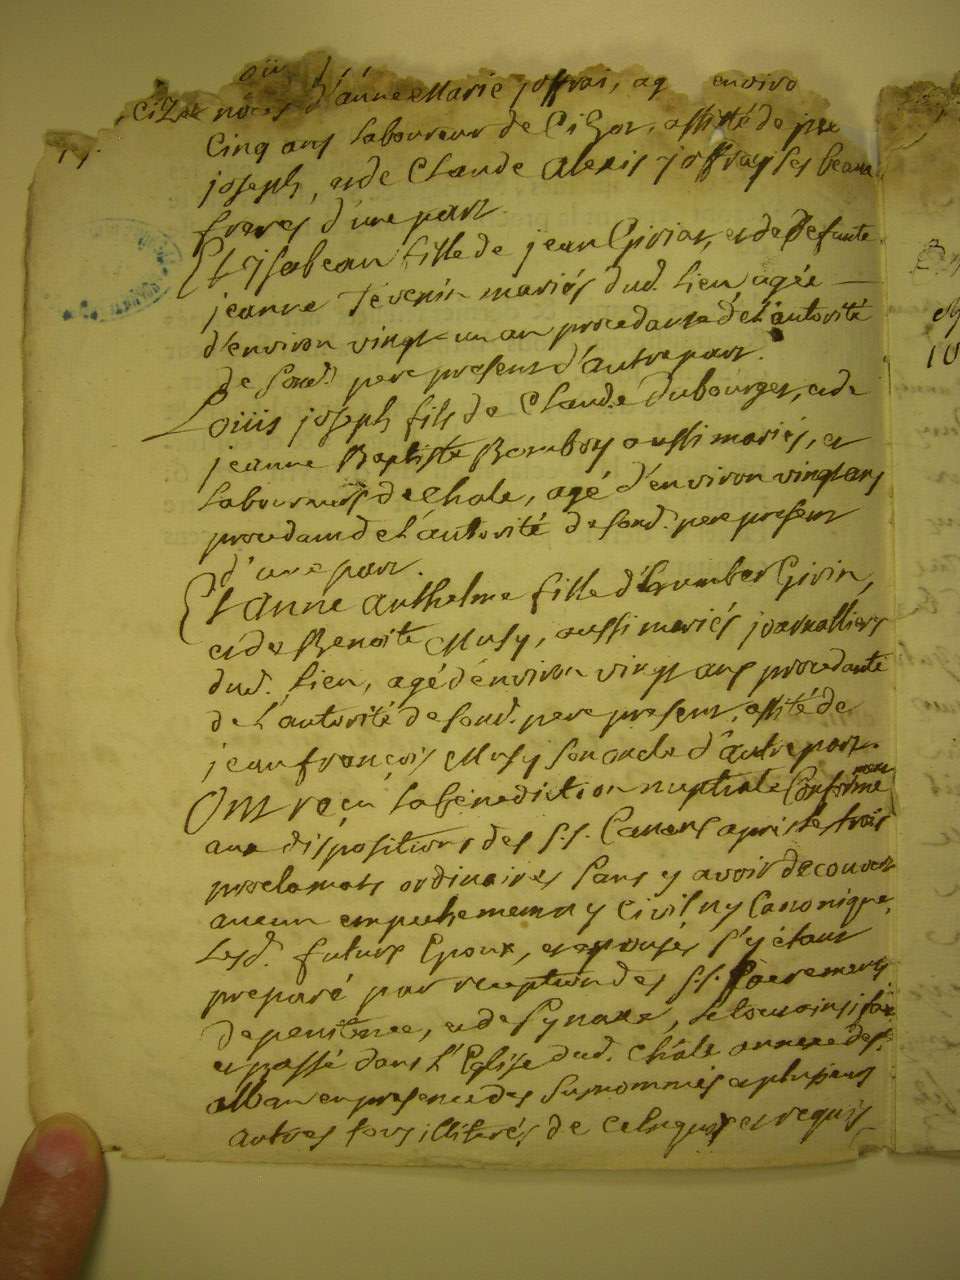 nôces d'anne Marie joffrai, environ
Cinq ans laboureur de Cizor, assisté de pre
joseph, et de Claude Alexis joffray ses beaux
freres d'une part
Et ysabeau fille de jean Giriat, et de Defunte
jeanne Tévenin mariés dud. lieu agée
d'environ vingt un an procedante de l'autorité
de soud. pere present d'autre part.
Louis joseph fils de Claude Dubourget, et de
jeanne Baptiste aussi mariés, et
laboureurs de Chale, agé d'environ vingt ans
procedant de l'autorité de soud. pere present
d'une part.
Et anne anthelme fille d'humbert Girin,
et de Benoite Musy, aussi mariés journalliers
dud. lieu, agé d'environ vingt ans procedante
de l'autorité de soud. pere present, assité de
jean françois Musy son oncle d'autre part.
Ont reçu la bénédiction nuptiale Conforme
aux dispositions des S.S. Canons apres les trois
proclamats ordinaires sans y avoir decouvert
aucun empechement ny Civil ny Canonique,
Lesd. futurs Epoux, et epousés s'y étant
preparé par reception des S.S. Sacremens
de penitence, et de Synaxe, le tout ainsi fait
et passé dans l'Eglise dud. Châle annexe de St.
alban en presence des surnommés et plusieurs
autres tous illiterés de ce enquis et requis